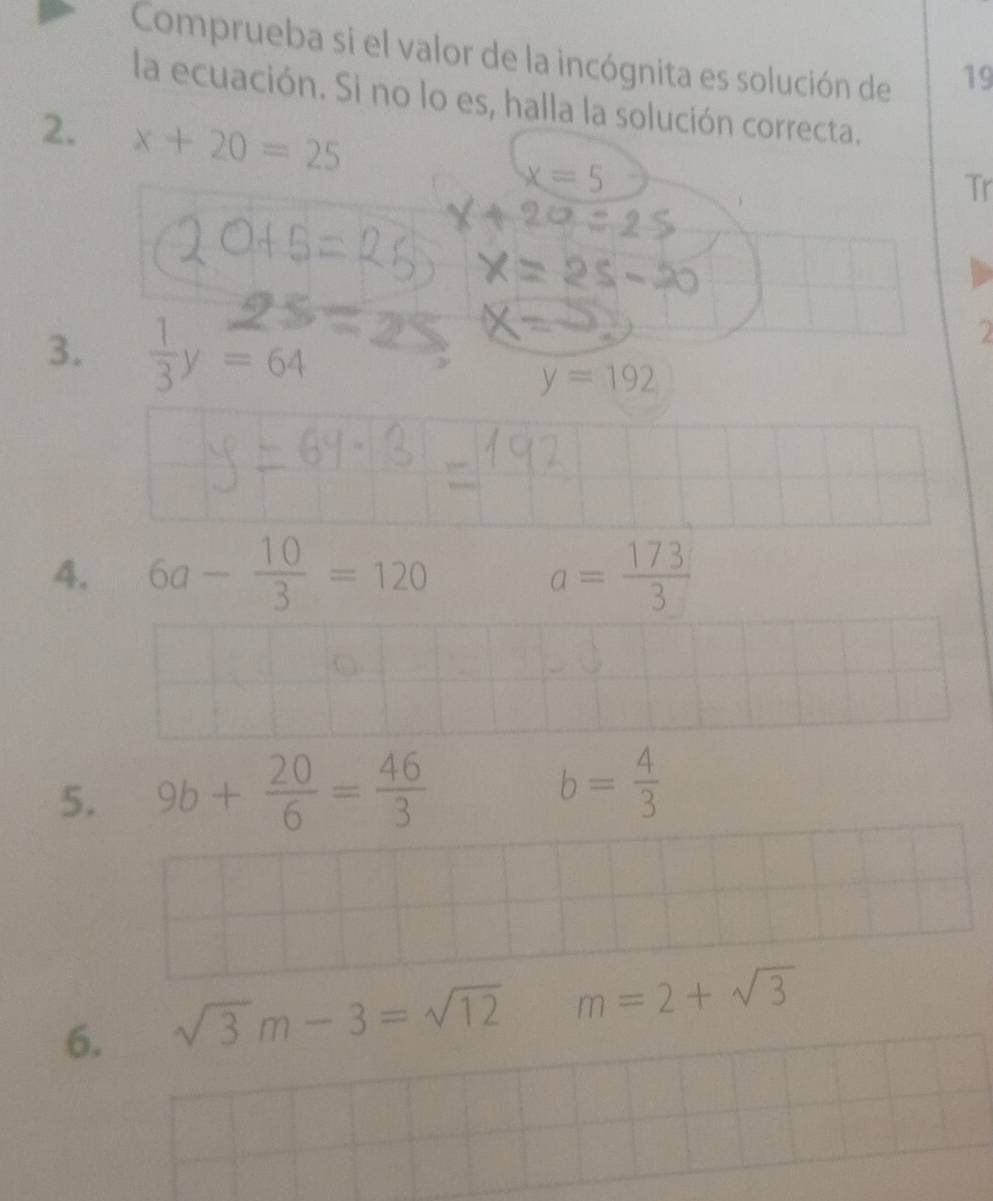 Comprueba si el valor de la incógnita es solución de
la ecuación. Si no lo es, halla la solución correcta.
19
2. x + 20 = 25
x = 5
Tr
x + 20 = 25
20+5=25
x = 25-20
25=25
x=5
2
3. \frac{1}{3}y = 64
y = 192
y = 64·3 = 192
4. 6a - \frac{10}{3} = 120
a = \frac{173}{3}
5. 9b + \frac{20}{6} = \frac{46}{3}
b = \frac{4}{3}
6. √3 m - 3 = √12
m = 2 + √3